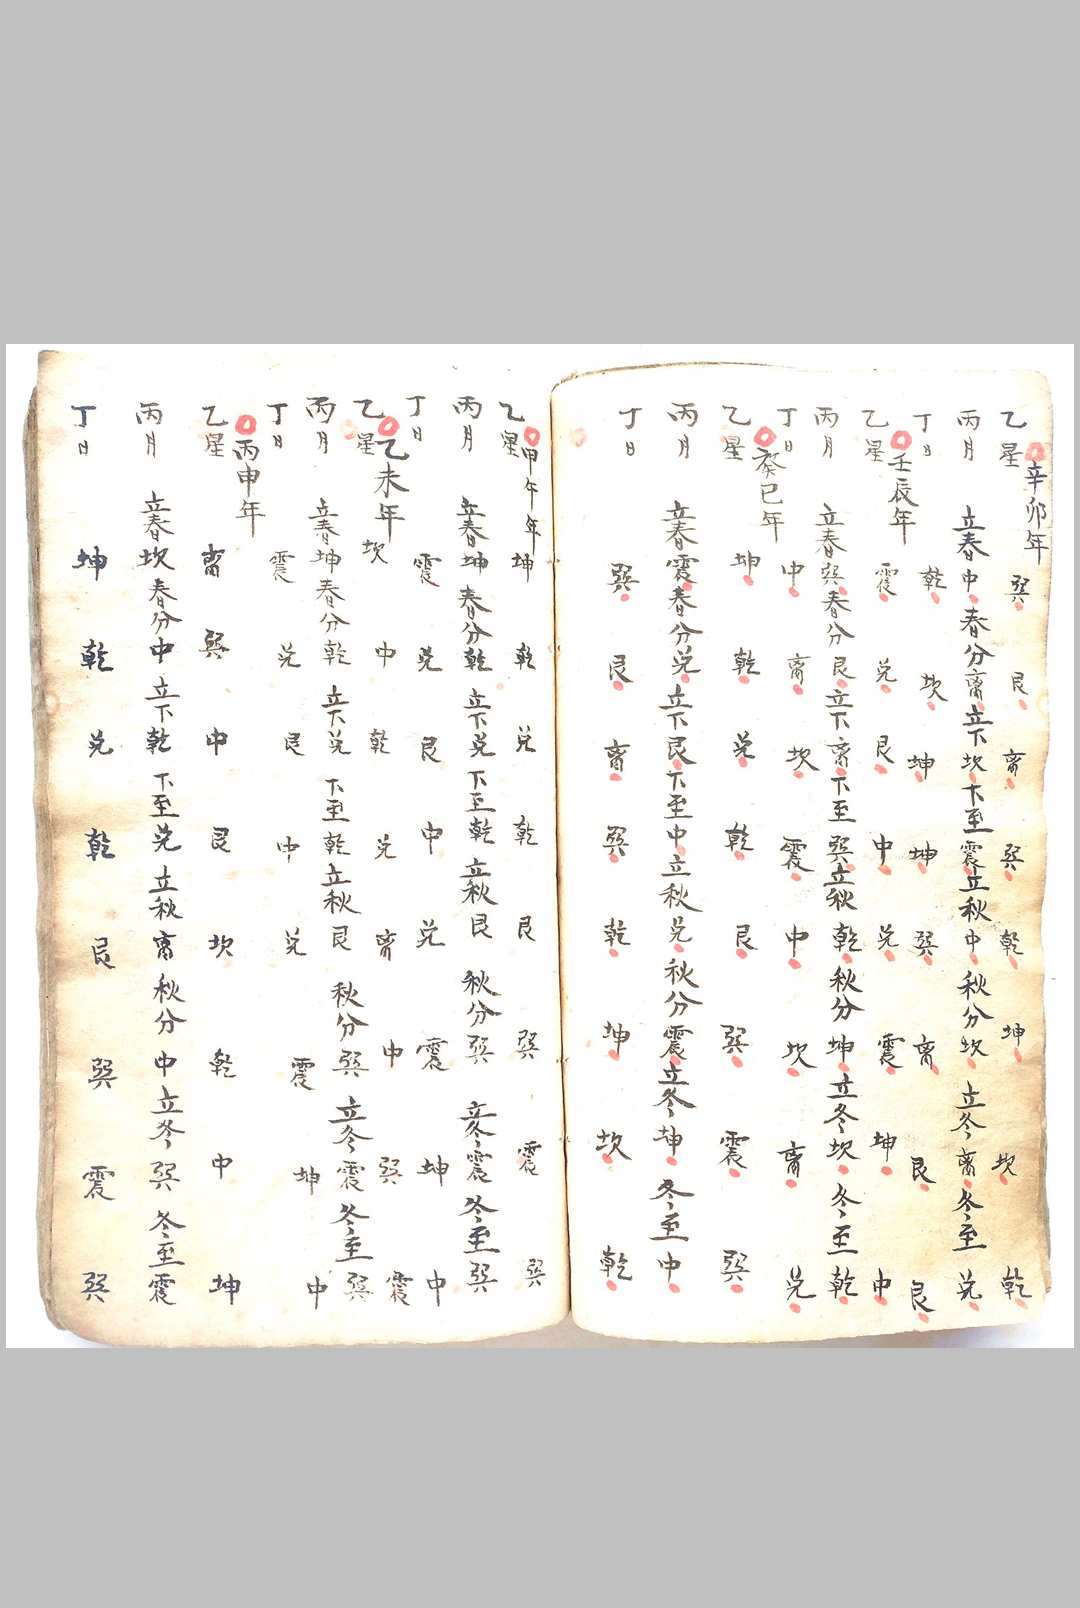 辛卯年
乙星 巽 艮 离 巽 乾 坤 坎 乾
丙月 立春中 春分离 立下坎 下至震 立秋中 秋分坎 立冬离 冬至兑
丁日 乾 坎 坤 坤 巽 离 艮 艮
壬辰年
乙星 震 兑 艮 中 兑 震 坤 中
丙月 立春巽 春分艮 立下离 下至巽 立秋乾 秋分坤 立冬坎 冬至乾
丁日 中 离 坎 震 中 坎 离 兑
癸巳年
乙星 坤 乾 兑 乾 艮 巽 震 巽
丙月 立春震 春分兑 立下艮 下至中 立秋兑 秋分震 立冬坤 冬至中
丁日 巽 艮 离 巽 乾 坤 坎 乾
甲午年
乙星 坤 乾 兑 乾 艮 巽 震 巽
丙月 立春坤 春分乾 立下兑 下至乾 立秋艮 秋分巽 立冬震 冬至巽
丁日 震 兑 艮 中 兑 震 坤 中
乙未年
乙星 坎 中 乾 兑 离 中 巽 震
丙月 立春坤 春分乾 立下兑 下至乾 立秋艮 秋分巽 立冬震 冬至巽
丁日 震 兑 艮 中 兑 震 坤 中
丙申年
乙星 离 巽 中 艮 坎 乾 中 坤
丙月 立春坎 春分中 立下乾 下至兑 立秋离 秋分中 立冬巽 冬至震
丁日 坤 乾 兑 乾 艮 巽 震 巽